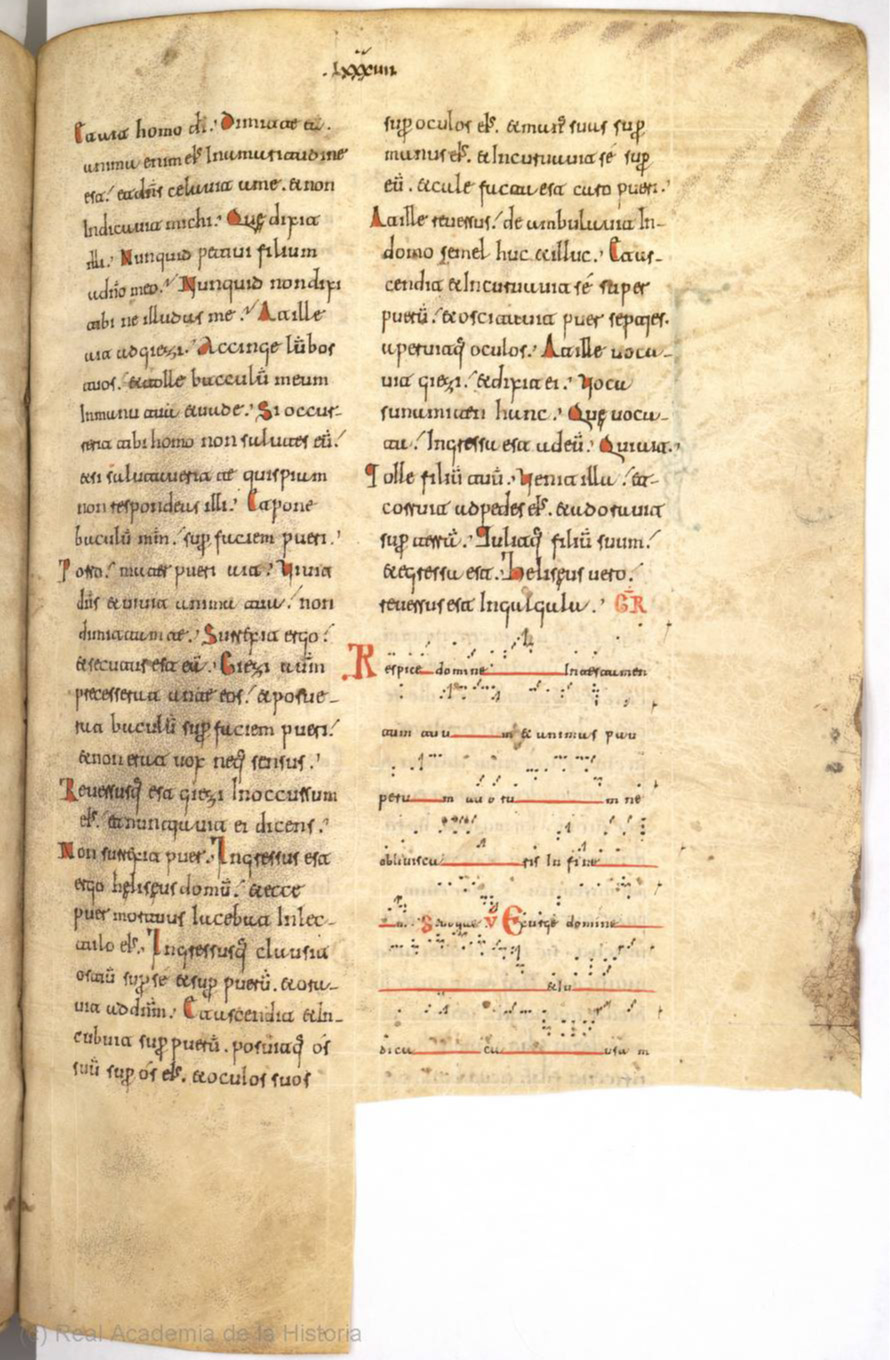 .lxxxuiii.
Et ait homo dī. Dimitte eā.
anima enim ei;. In amaritudine
est. et dn̄s celauit a me. & non
Indicauit michi. Quę dixit
illi. Nunquid petiui filium
a dn̄o meo. Nunquid non dixi
tibi ne illudas me. Et ille
ait ad giezi. Accinge lūbos
tuos. & tolle bacculū meum
In manu tua & uade. Si occur-
rerit tibi homo non salutes eū.
et si salutauerit te quispiam
non respondeas illi. Et pone
baculū mm̄. sup̱ faciem pueri.
Porro. mater pueri ait. Viuit
dn̄s & uiuit anima tua. non
dimittam te. Surrexit ergo.
& secutus est eā. Giezi aūm
precesserat ante eos. & posue-
rat baculū sup̱ faciem pueri.
& non erat uox neq; sensus.
Reuersusq; est giezi In occursum
ei;. et nunciauit ei dicens.
Non surrexit puer. Ingressus est
ergo heliseus domū. & ecce
puer mortuus Iacebat In lec-
tulo ei;. Ingressusq; clausit
ostiū sup̱ se & sup̱ puerū. & ora-
uit ad dn̄m. Et ascendit & In-
cubuit sup̱ puerū. posuitq; os
suū sup̱ os ei;. & oculos suos
sup̱ oculos ei;. & man; suas sup̱
manus ei;. & Incuruauit se sup̱
eū. & calefacta est caro pueri.
Et ille reuersus. deambulauit In-
domo semel huc & illuc. Et as-
cendit & Incuruauit se super
puerū. & oscitauit puer septies.
aperuitq; oculos. Et ille uoca-
uit giezi. & dixit ei. Voca
sunamiten hanc. Quę uoca-
ta. Ingressa est ad eū. Qui ait.
Tolle filiū tuū. Venit illa. et-
corruit ad pedes ei;. & adorauit
sup̱ terrā. Tulitq; filiū suum.
& egressa est. Heliseus uero.
reuersus est In galgala. GR̄
Respice domine In testamen
tum tuu m & animas pau
peru m tuo ru m ne
obliuisca ris In fine
m. V Exurge domine
& iu
dica ca usa m